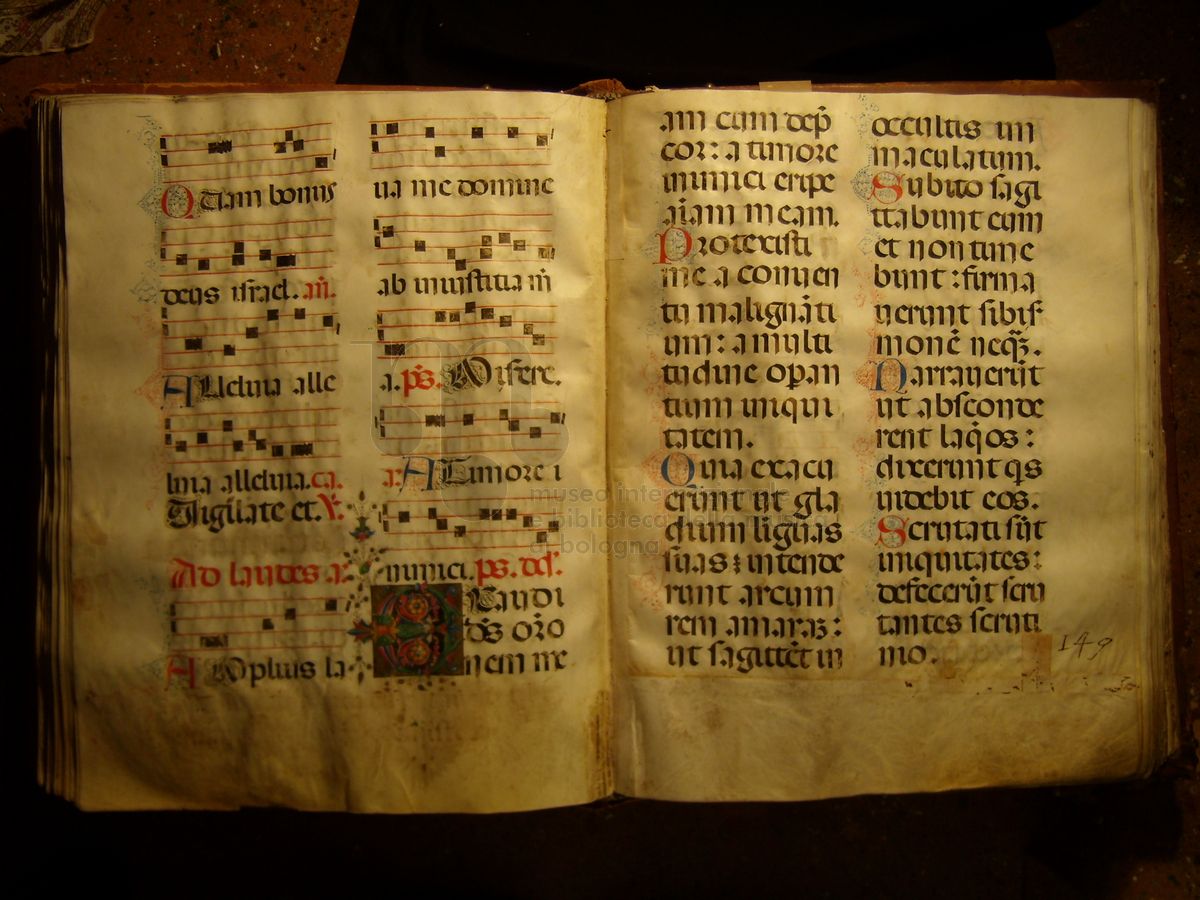 Q̄uam bonus
deus israel. añ.
Alleluia alle
luia alleluia. ca.
Vigilate et. V̄.
Ad laudes a:
Amplius la
ua me domine
ab iniustitia m̄
a. ps. Misere.
a: A timore i
nimici. ps. des.
Exaudi
ds orō
nem me
am cum dep̄
cor: a timore
inimici eripe
aīam meam.
Protexisti
me a conuen
tu malignāti
um: a multi
tudine operan
tium iniqui
tatem.
Quia exacu
erunt ut gla
dium liguas
suas: intende
runt arcum
rem amaraʒ:
ut sagittēt in
occultis im
maculatum.
Subito sagi
ttabunt eum
et non time
bunt: firma
uerunt sibi s̄
monē neqʒ.
Narrauerūt
ut absconde
rent laq̄os:
dixerunt qs
uidebit eos.
Scrutati sūt
iniquitates:
defecerūt scru
tantes scruti
nio.
149
museo inte
e biblioteca
di bologna